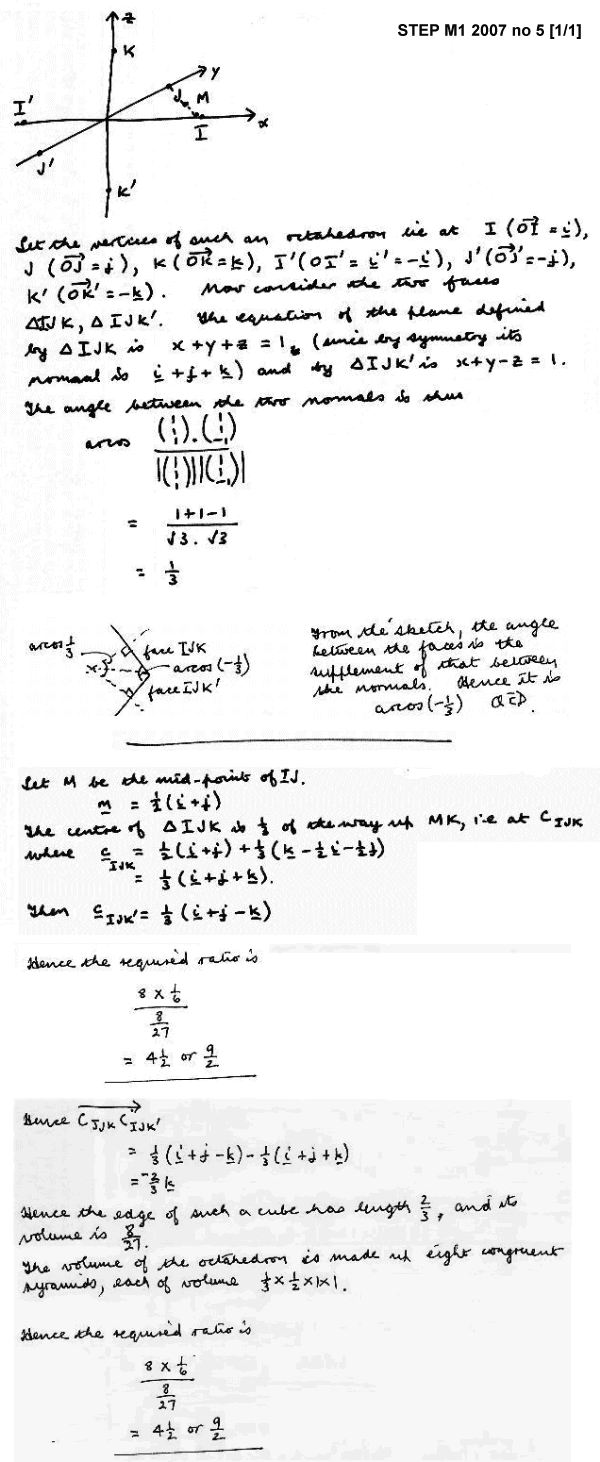 STEP M1 2007 no 5 [1/1]
z
K
y
J M
I'
I
x
J'
K'
Let the vertices of such an octahedron lie at I (OI→ = i),
J (OJ→ = j), K (OK→ = k), I' (OI' = i' = -i), J' (OJ'→ = -j),
K' (OK'→ = -k). Now consider the two faces
ΔIJK, ΔIJK'. The equation of the plane defined
by ΔIJK is x+y+z = 1, (since by symmetry its
normal is i + j + k) and by ΔIJK' is x+y-z = 1.
The angle between the two normals is thus
arcos (1 1 1) . (1 1 -1) / |(1 1 1)| |(1 1 -1)|
= 1+1-1 / √3 . √3
= 1/3
arcos 1/3
face IJK
x
arcos (-1/3)
face IJK'
From the sketch, the angle
between the faces is the
supplement of that between
the normals. Hence it is
arcos (-1/3) QED.
Let M be the mid-point of IJ.
m = 1/2 (i + j)
The centre of ΔIJK is 1/3 of the way up MK, i.e at C IJK
where c IJK = 1/2 (i + j) + 1/3 (k - 1/2 i - 1/2 j)
= 1/3 (i + j + k).
Then c IJK' = 1/3 (i + j - k)
Hence the required ratio is
8 × 1/6 / 8/27
= 4 1/2 or 9/2
Hence C IJK C IJK' →
= 1/3 (i + j - k) - 1/3 (i + j + k)
= -2/3 k
Hence the edge of such a cube has length 2/3, and its
volume is 8/27.
The volume of the octahedron is made up eight congruent
pyramids, each of volume 1/3 × 1/2 × 1 × 1.
Hence the required ratio is
8 × 1/6 / 8/27
= 4 1/2 or 9/2